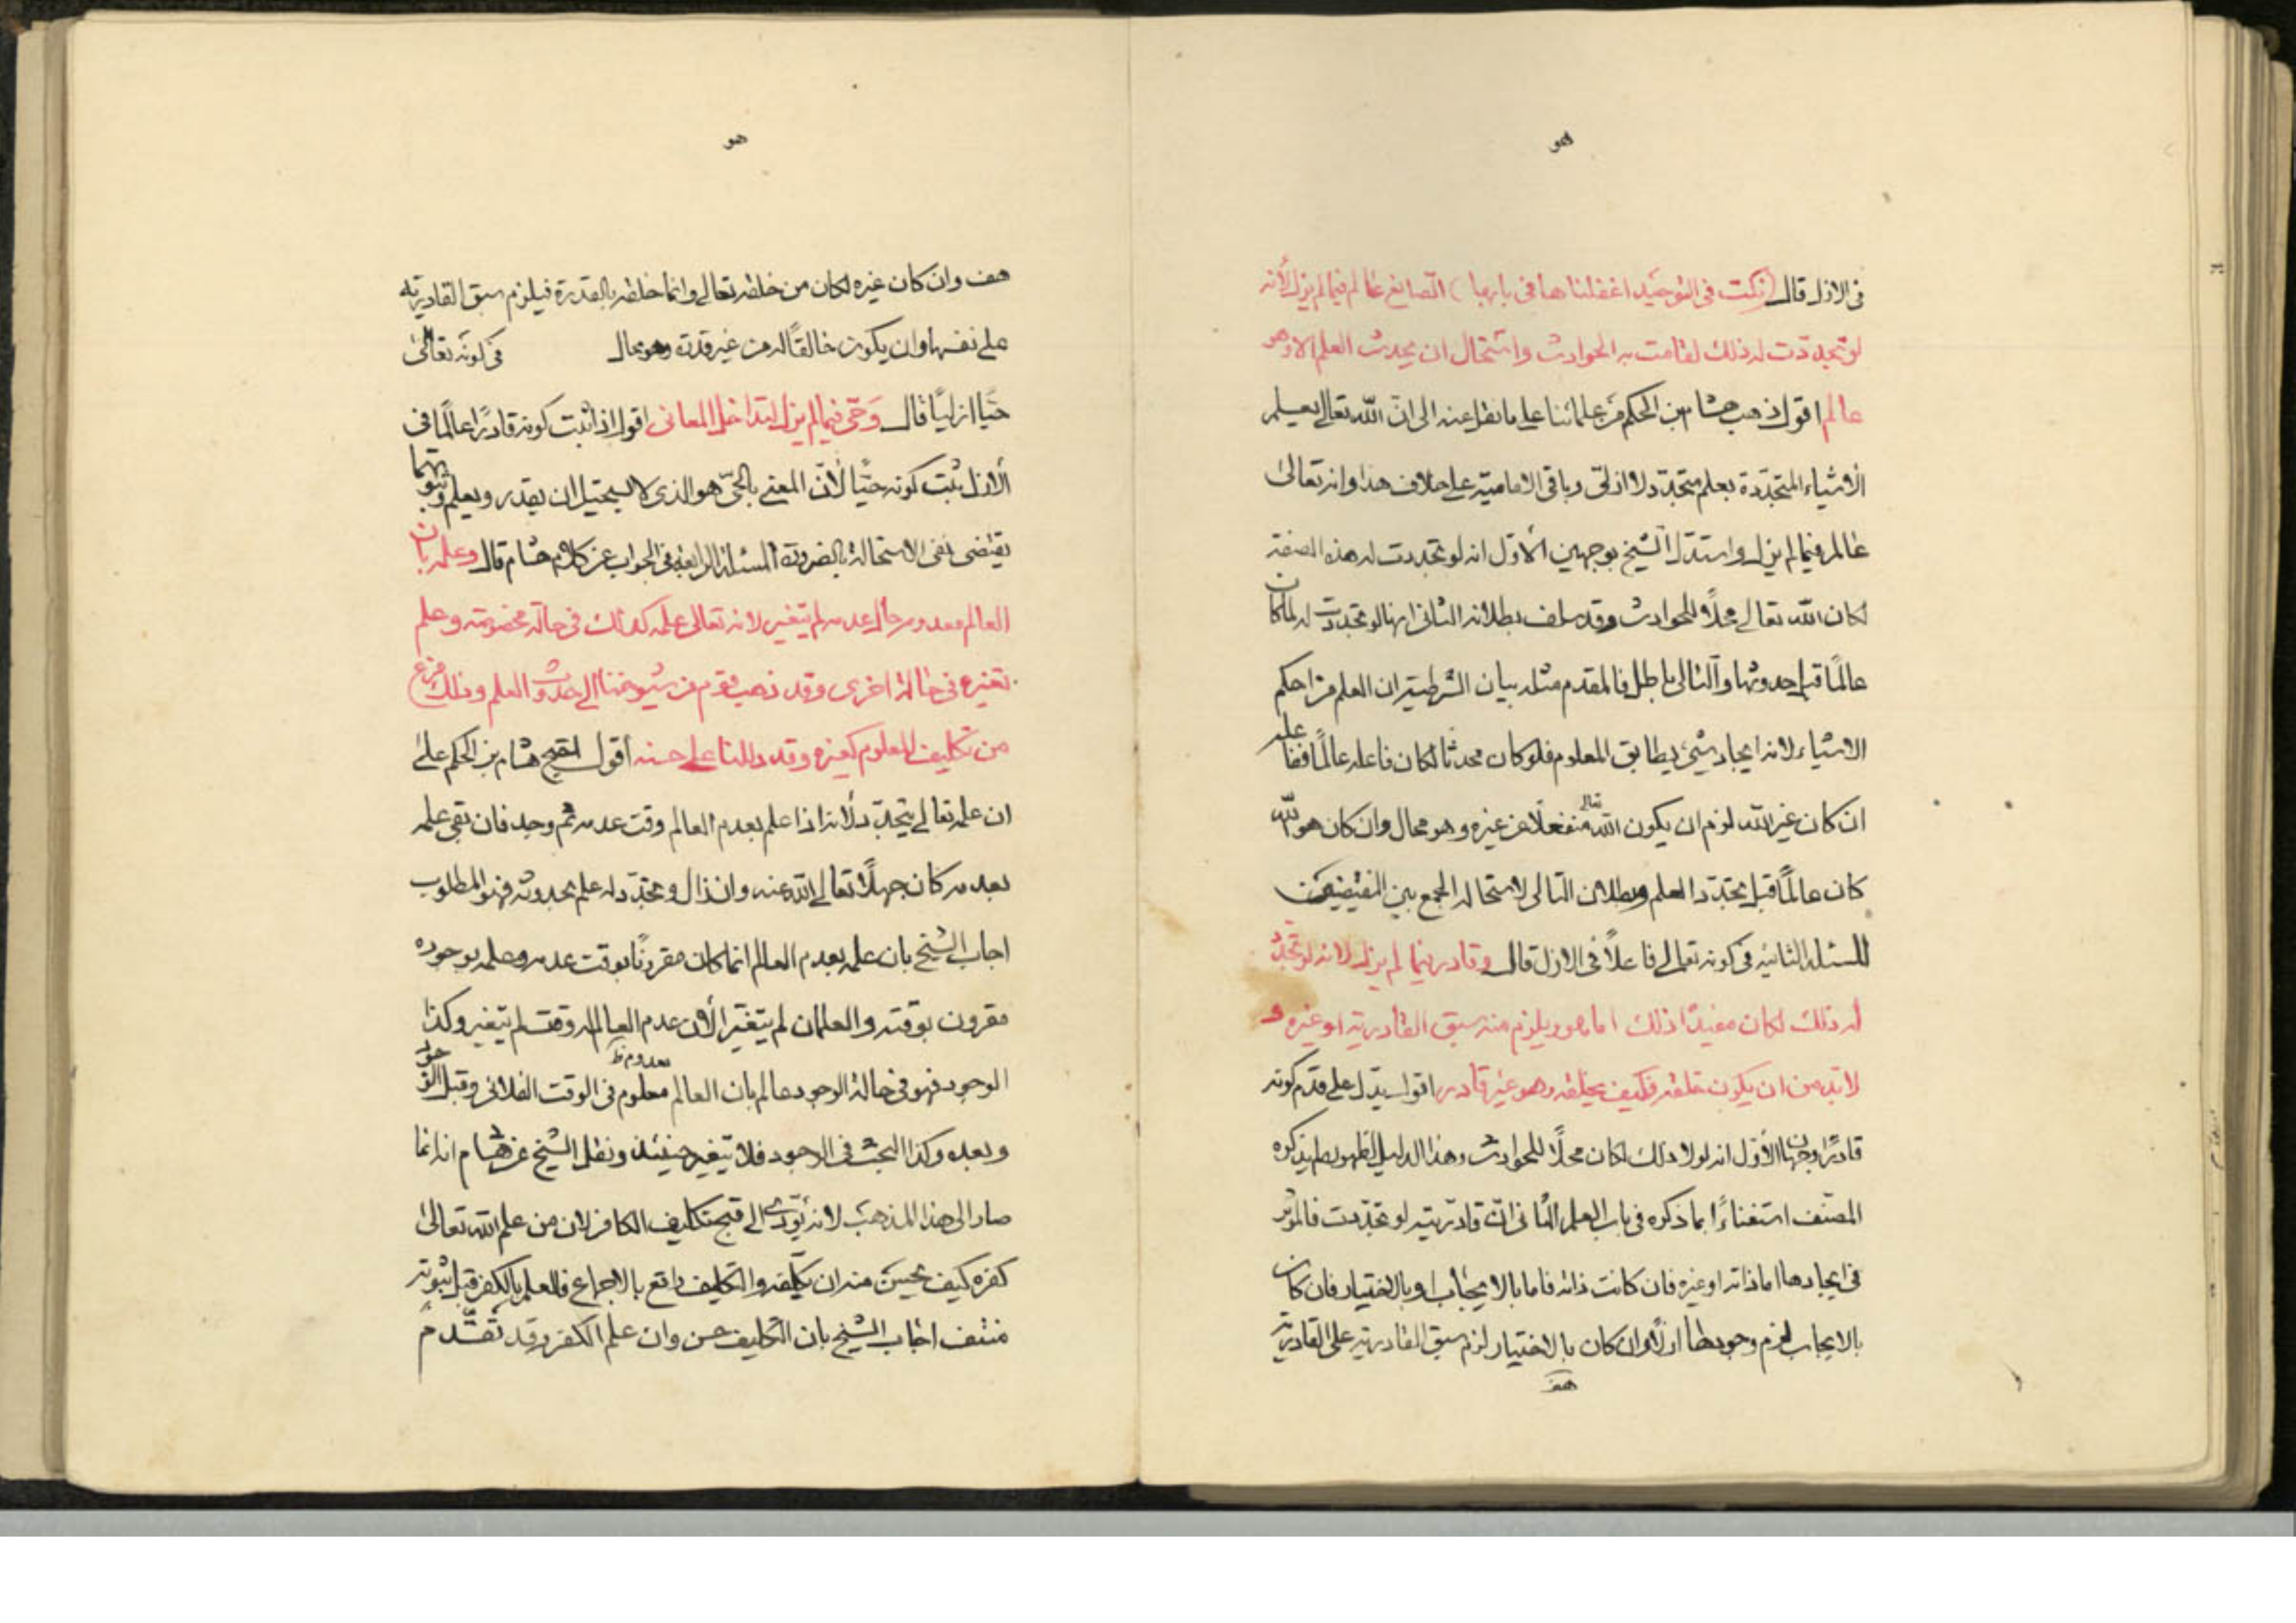 هو
في الازل قال (نكت في التوحيد اغفلناها في بابها) الصانع عالم فيما لم يزل لأنه
لو تجددت له ذلك لقامت به الحوادث واستحال ان يحدث العلم الا وهو
عالم اقول ذهب هشام بن الحكم من علمائنا على ما نقل عنه الى انّ الله تعالى يعلم
الأشياء المتجددة بعلم متجدد لا ازلي وباقي الامامية على خلاف هذا وانه تعالى
عالم فيما لم يزل واستدل الشيخ بوجهين الأول انه لو تجددت له هذه الصفة
لكان الله تعالى محلاً للحوادث وقد سلف بطلانه الثاني انها لو تجددت له لكان
عالمًا قبل حدوثها والتالي باطل فالمقدم مثله بيان الشرطية ان العلم من احكم
الاشياء لانه ايجاد شيء يطابق المعلوم فلو كان محدثا لكان فاعله عالمًا ففاعله
ان كان غير الله لزم ان يكون الله تعالى منفعلا عن غيره وهو محال وان كان هو الله
كان عالمًا قبل تجدد العلم وبطلان التالي لاستحالة الجمع بين النقيضين
المسئلة الثانية في كونه تعالى فاعلاً في الازل قال وقادر فيما لم يزل لانه لو تجدد
له ذلك لكان مفيد ذلك اما هو ويلزم منه سبق القادرية او غيره و
لا بد من ان يكون خلقه فكيف يخلقه وهو غير قادر اقول يدل على قدم كونه
قادرًا وجهان الأول انه لولا ذلك لكان محلًا للحوادث وهذا الدليل لظهوره لم يذكره
المصنف استغناءً بما ذكره في باب العلم الثاني انّ قادريته لو تجددت فالمؤثر
في ايجادها اما ذاته او غيره فان كانت ذاته فاما بالايجاب او بالاختيار فان كان
بالايجاب لزم وجودها ازلًا وان كان بالاختيار لزم سبق القادرية على القادرية
هف
هو
هف وان كان غيره لكان من خلقه تعالى وانما خلقه بالقدرة فيلزم سبق القادرية
على نفسها وان يكون خالقًا له من غير قدرة وهو محال في كونه تعالى
حيًا ازليًا قال وَحيّ فيما لم يزل لتداخل المعاني اقول اذا ثبت كونه قادرًا عالمًا في
الأزل ثبت كونه حيًّا لأنّ المعني بالحيّ هو الذي لا يستحيل ان يقدر ويعلم وثبوتهما
يقتضي نفي الاستحالة بالضرورة المسئلة الرابعة في الجواب عن كلام هشام قال وعلمه بان
العالم معدوم حال عدمه لم يتغير لانه تعالى علمه كذلك في حالة مخصوصة وعلم
تغيره في حالة اخرى وقد ذهب قوم من شيوخنا الى حدوث العلم وذلك فزع
من تكليف المعلوم كفره وقد دللنا على حسنه أقول احتج هشام بن الحكم على
ان علمه تعالى يتجدد لأنه اذا علم بعدم العالم وقت عدمه ثم وجد فان بقي علمه
بعدمه كان جهلًا تعالى الله عنه وان زال وتجدد له علم بحدوثه فهو المطلوب
اجاب الشيخ بان علمه بعدم العالم انما كان مقرونًا بوقت عدمه وعلمه بوجوده
مقرون بوقته والعلمان لم يتغيرا لأن عدم العالم في وقت لم يتغير وكذا
الوجود فهو في حالة الوجود عالم بان العالم معلوم معدوم ظ في الوقت الفلاني وقبل الوجود
وبعده وكذا البحث في الوجود فلا يتغير حينئذ ونقل الشيخ عن هشام انه انما
صار الى هذا المذهب لانه يؤدي الى قبح تكليف الكافر لان من علم الله تعالى
كفره كيف يحسن منه ان يكلفه والتكليف واقع بالاجماع فالعلم بالكفر قبل ثبوته
منتف اجاب الشيخ بان التكليف حسن وان علم الكفر وقد تقدّم